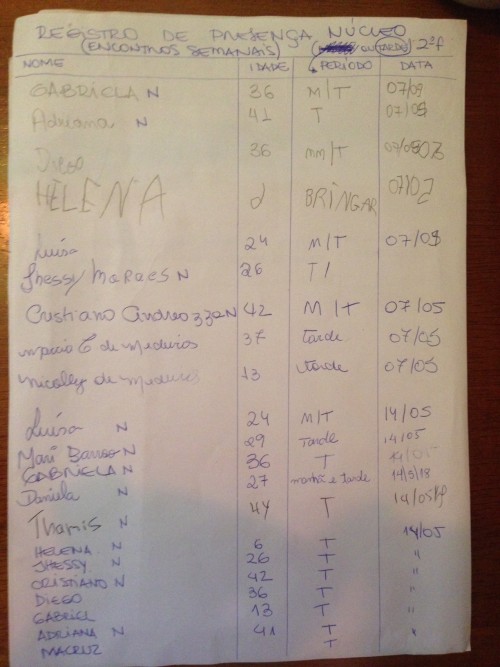 REGISTRO DE PRESENÇA NÚCLEO
(ENCONTROS SEMANAIS) ou TARDES) 2ªf
NOME IDADE PERÍODO DATA
GABRIELA N 36 M/T 07/05
Adriana N 41 T 07/05
Diego 36 M/T 07/05
HELENA BRINCAR
Luísa 24 M/T 07/05
Jhessy Moraes N 26 T/
Cristiano Andreozza N 42 M/T 07/05
de Medeiros 37 tarde 07/05
Nicolly de Medeiros 13 tarde 07/05
Luísa N 24 M/T 14/05
Mari Barros N 29 Tarde 14/05
GABRIELA N 36 T 14/05
Daniela N 27 manhã e tarde 14/5/18
Thamis N 44 T 14/05
HELENA N 6 T 14/05
JHESSY N 26 T "
CRISTIANO N 42 T "
DIEGO 36 T "
GABRIEL 13 T "
ADRIANA N 41 T "
MACRUZ T